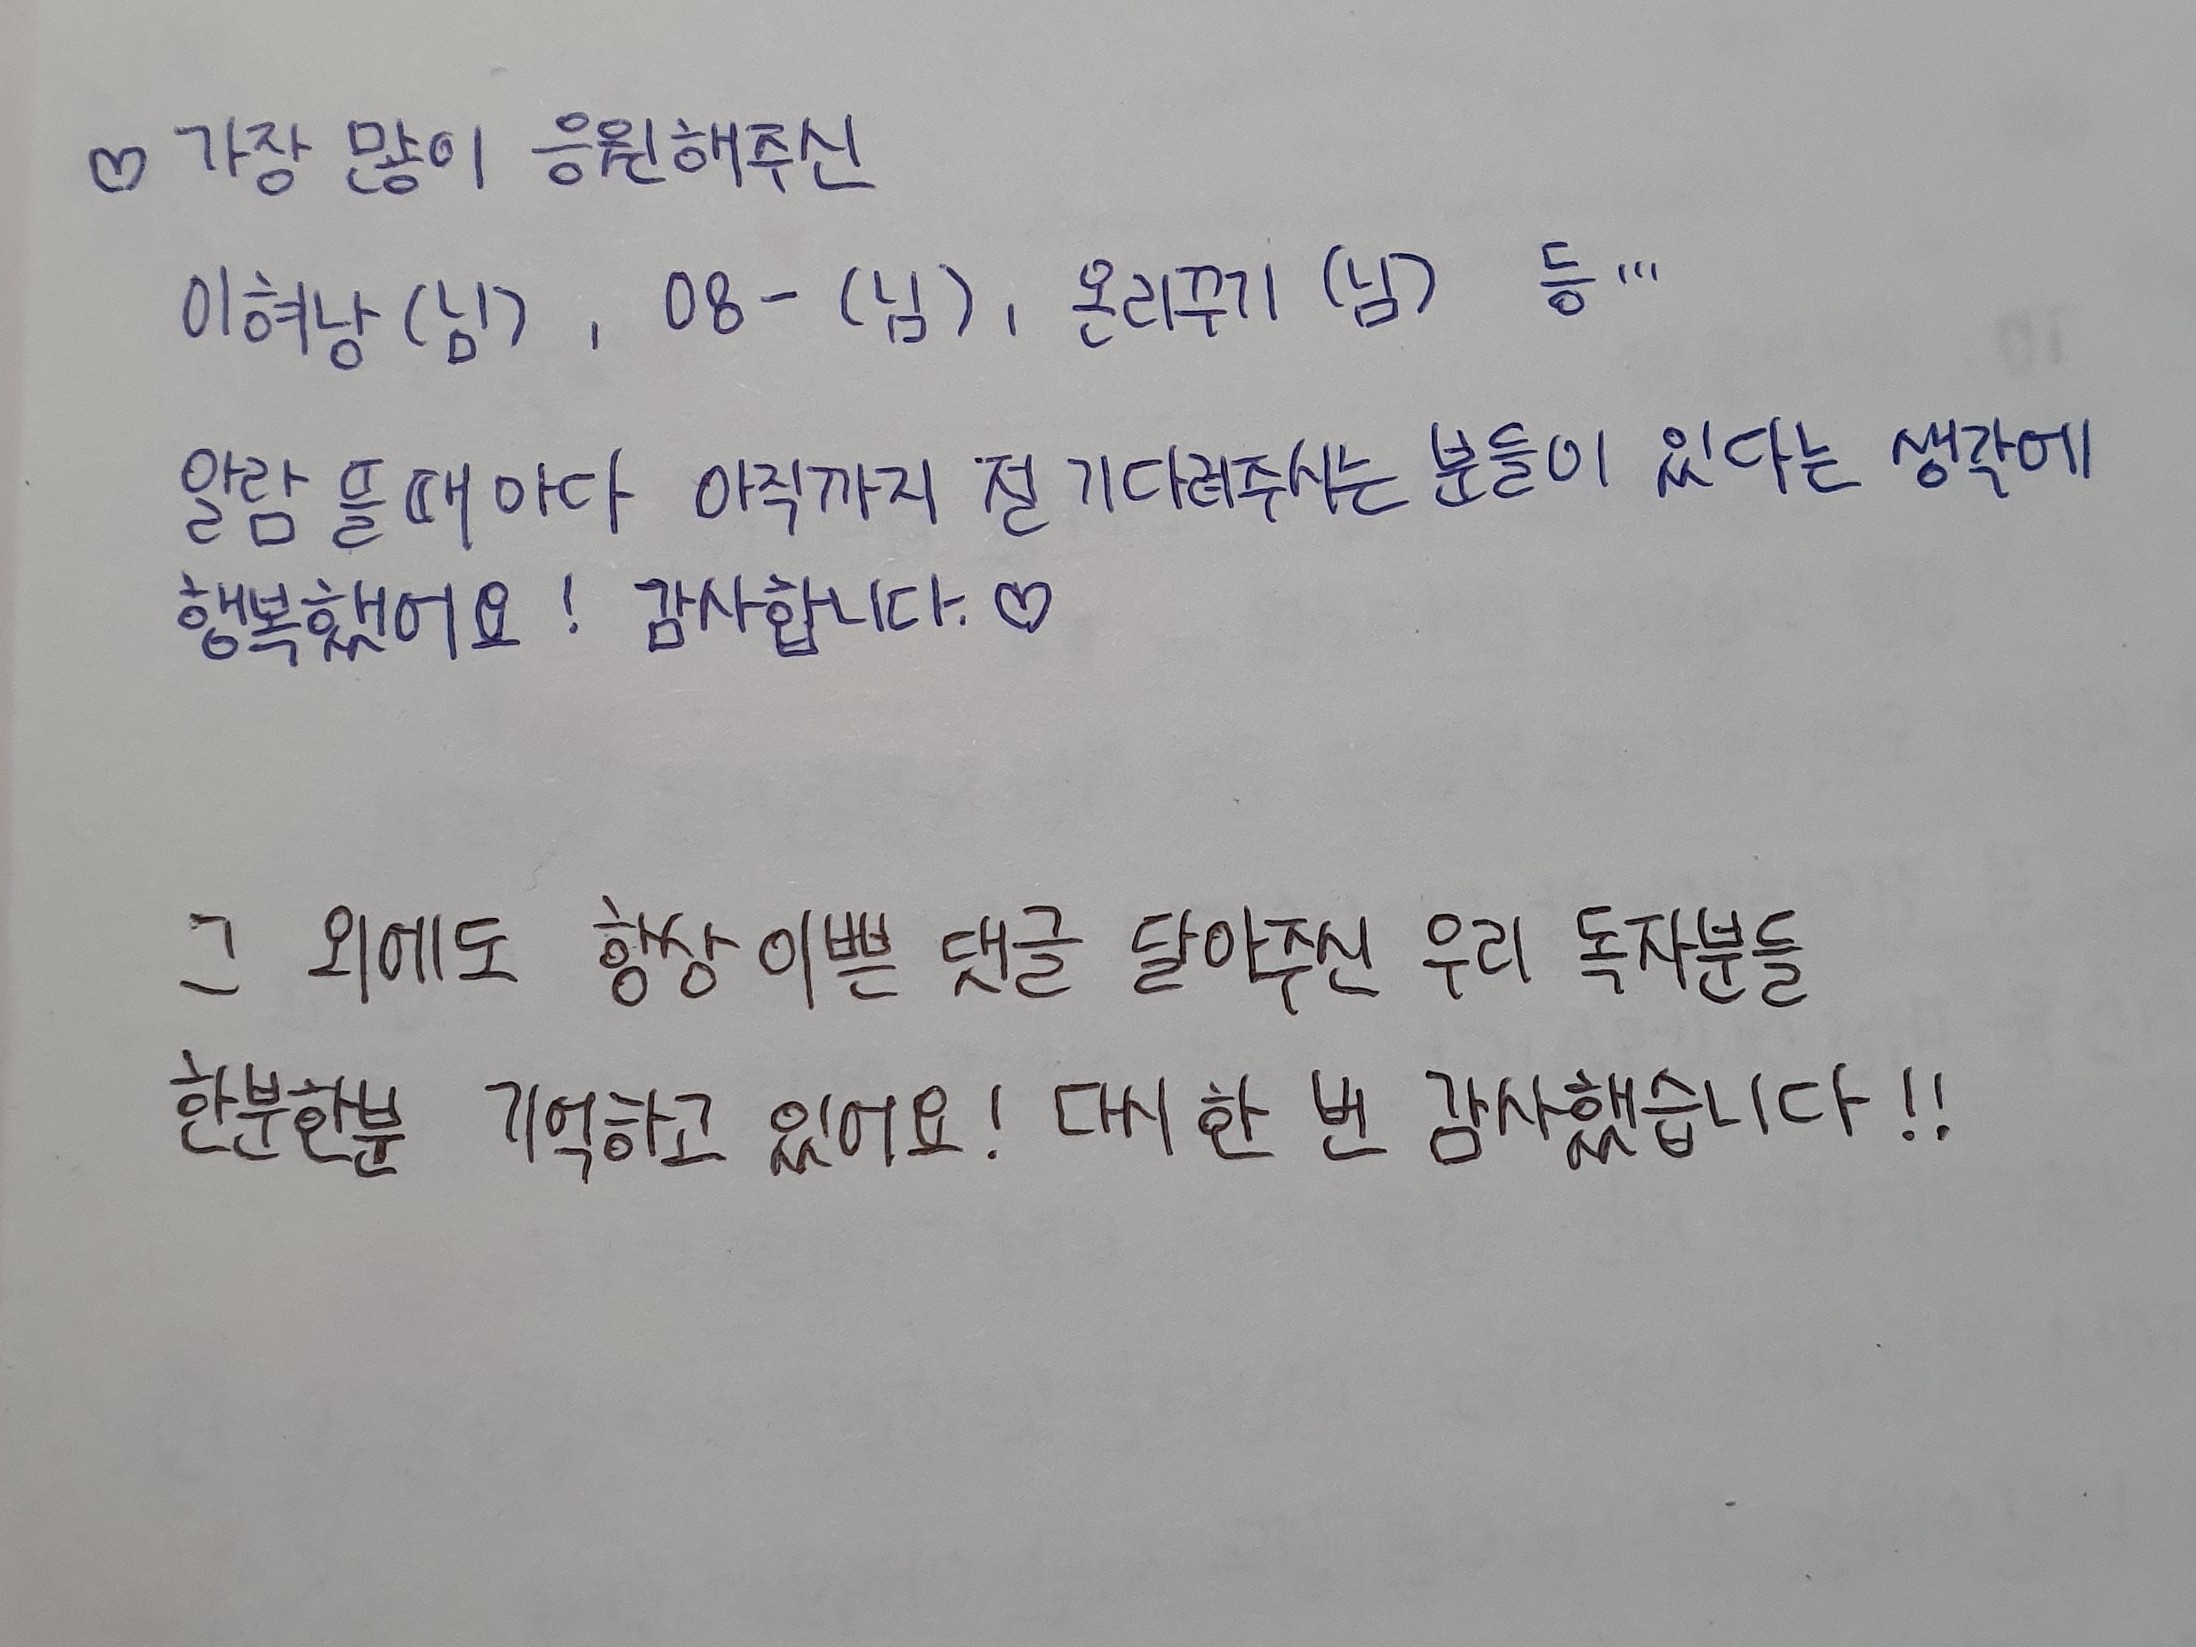 ♡ 가장 많이 응원해주신
이혀낭(님), 08-(님), 온리꾸기 (님) 등...
알람 뜰때 마다 아직까지 절 기다려주시는 분들이 있다는 생각에
행복했어요! 감사합니다. ♡
그 외에도 항상 이쁜 댓글 달아주신 우리 독자분들
한분한분 기억하고 있어요! 다시 한 번 감사했습니다!!